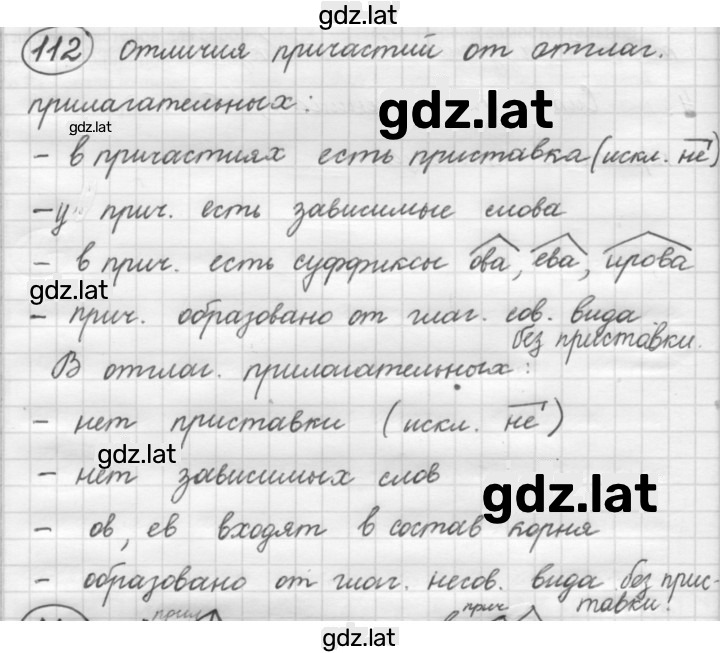 gdz.lat
112 Отличия причастий от отглаг.
прилагательных:
gdz.lat
gdz.lat
- в причастиях есть приставка (искл. не)
- у прич. есть зависимые слова
- в прич. есть суффиксы ова, ева, ирова
gdz.lat
- прич. образовано от глаг. сов. вида
без приставки.
В отглаг. прилагательных:
- нет приставки (искл. не)
gdz.lat
- нет зависимых слов
gdz.lat
- ов, ев входят в состав корня
- образовано от глаг. несов. вида без прис-
тавки!
прич
gdz.lat